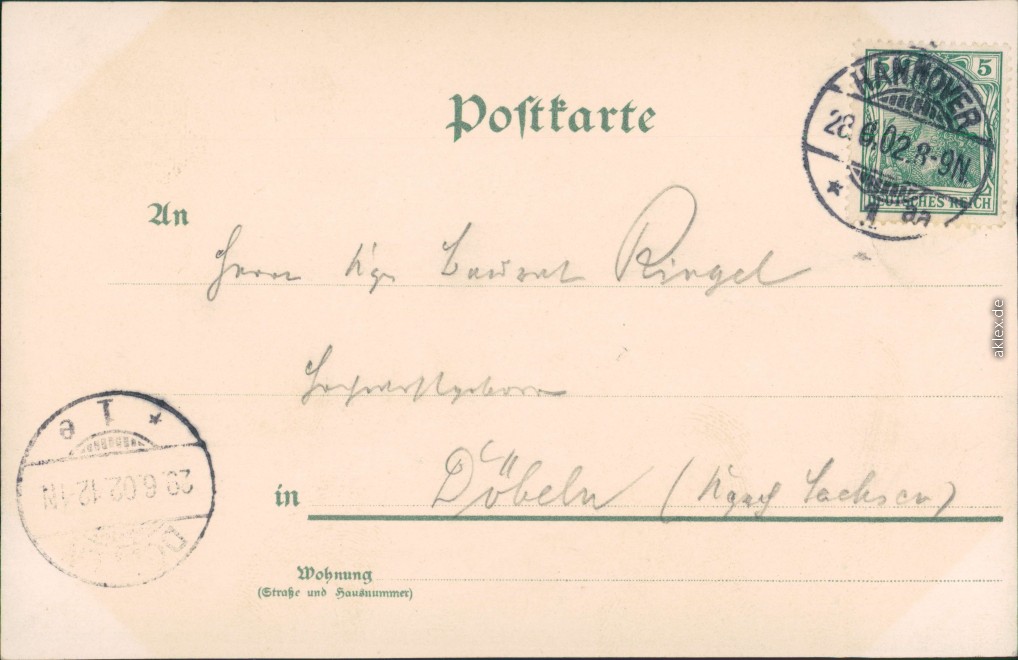 Postkarte
5 5
HANNOVER
28.6.02.8-9N.
* 1 aa
DEUTSCHES REICH
An
Herrn Kgr Baurat Ringel
Hochwohlgeboren
in Döbeln (Kgrch Sachsen)
* 1 e
29.6.02.12-1N
Wohnung
(Straße und Hausnummer)
aklex.de